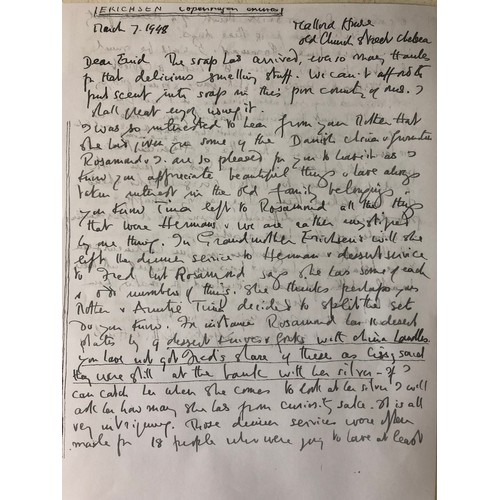 ERICHSEN Copenhagen china
March 7. 1948
Mallord House
Old Church Street Chelsea
Dear Enid The soap has arrived, ever so many thanks
for that delicious smelling stuff. We can't afford to
put scent into soaps in this poor country of ours. I
shall great enjoy using it.
I was so interested to hear from your Mother that
she has given you some of the Danish china &
Rosamund & I are so pleased for you to have it as I
know you appreciate beautiful things & have always
taken interest in the old family belongings.
You know Tina left to Rosamund all the things
that were Hermans & we are rather mystified
by one thing. In Grandmother Erichsen's will she
left the dinner service to Herman & dessert service
to Fred but Rosamund says she has some of each
& odd numbers of things. She thinks perhaps your
Mother & Auntie Tina decided to split the set
Do you know. For instance Rosamund has 11 dessert
plates & 9 dessert knives & forks with china handles.
You have not got Fred's share of these as Cissy said
they were still at the bank with her silver - If I
can catch her when she comes to look at her silver I will
ask her how many she has from curiosity sake. It is all
very intriguing. Those dinner services were often
made for 18 people who were going to have at least